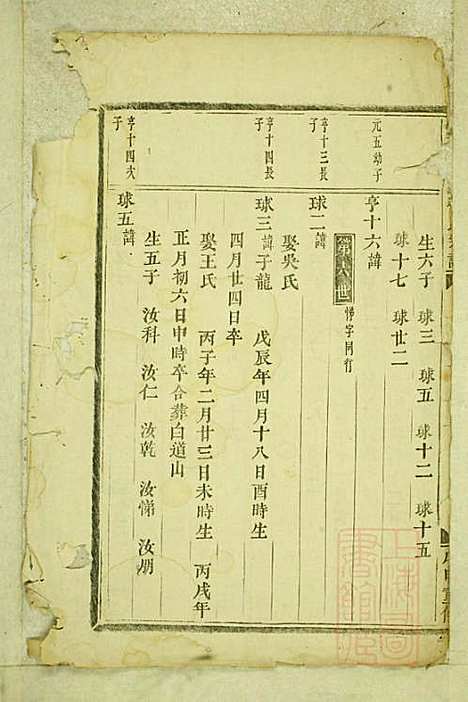 生六子 球三 球五 球十二 球十五
球十七 球廿二
元五幼子
亨十六諱
第十八世 悌字同行
亨十三長子
球二諱
娶吳氏
亨十四長子
球三諱子龍 戊辰年四月十八日酉時生
四月廿四日卒
娶王氏 丙子年二月廿三日未時生 丙戌年
正月初六日申時卒合葬白道山
生五子 汝科 汝仁 汝乾 汝悌 汝朋
亨十四次子
球五諱
上海圖書館藏